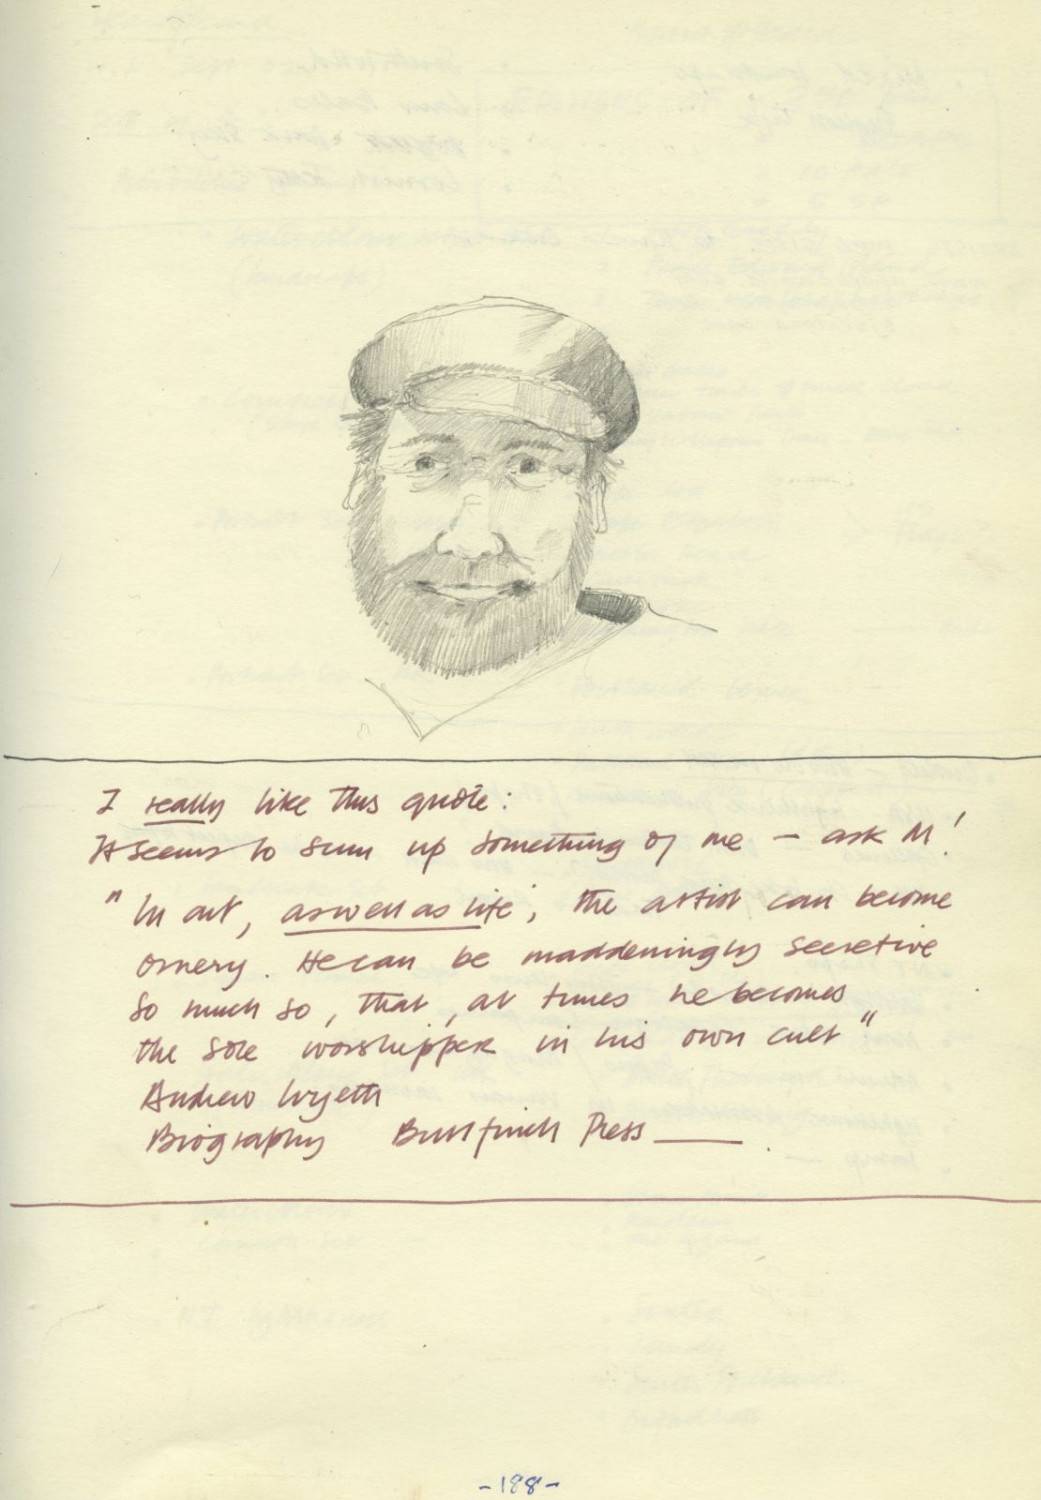 I really like this quote:
It seems to sum up something of me – ask M!
"In art, as well as life', the artist can become
ornery. He can be maddeningly secretive
so much so, that, at times he becomes
the sole worshipper in his own cult"
Andrew Wyeth
Biography Bullfinch Press
-188-